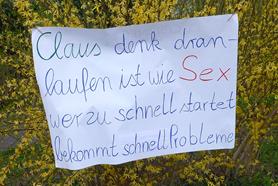 Claus denk dran-
laufen ist wie Sex
wer zu schnell startet
bekommt schnell Probleme